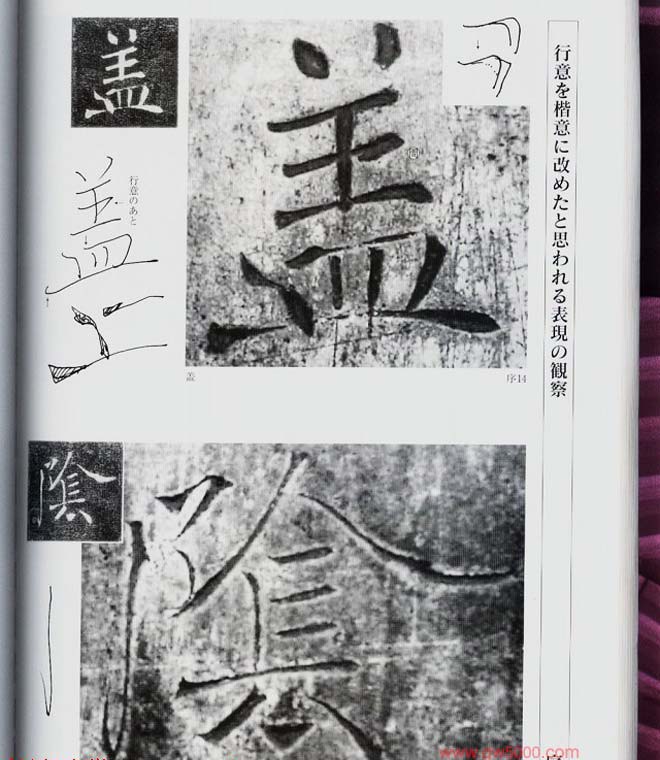 行意を楷意に改めたと思われる表現の観察
盖
序14
蓋
盖
行意のあと
盖
隂
隂